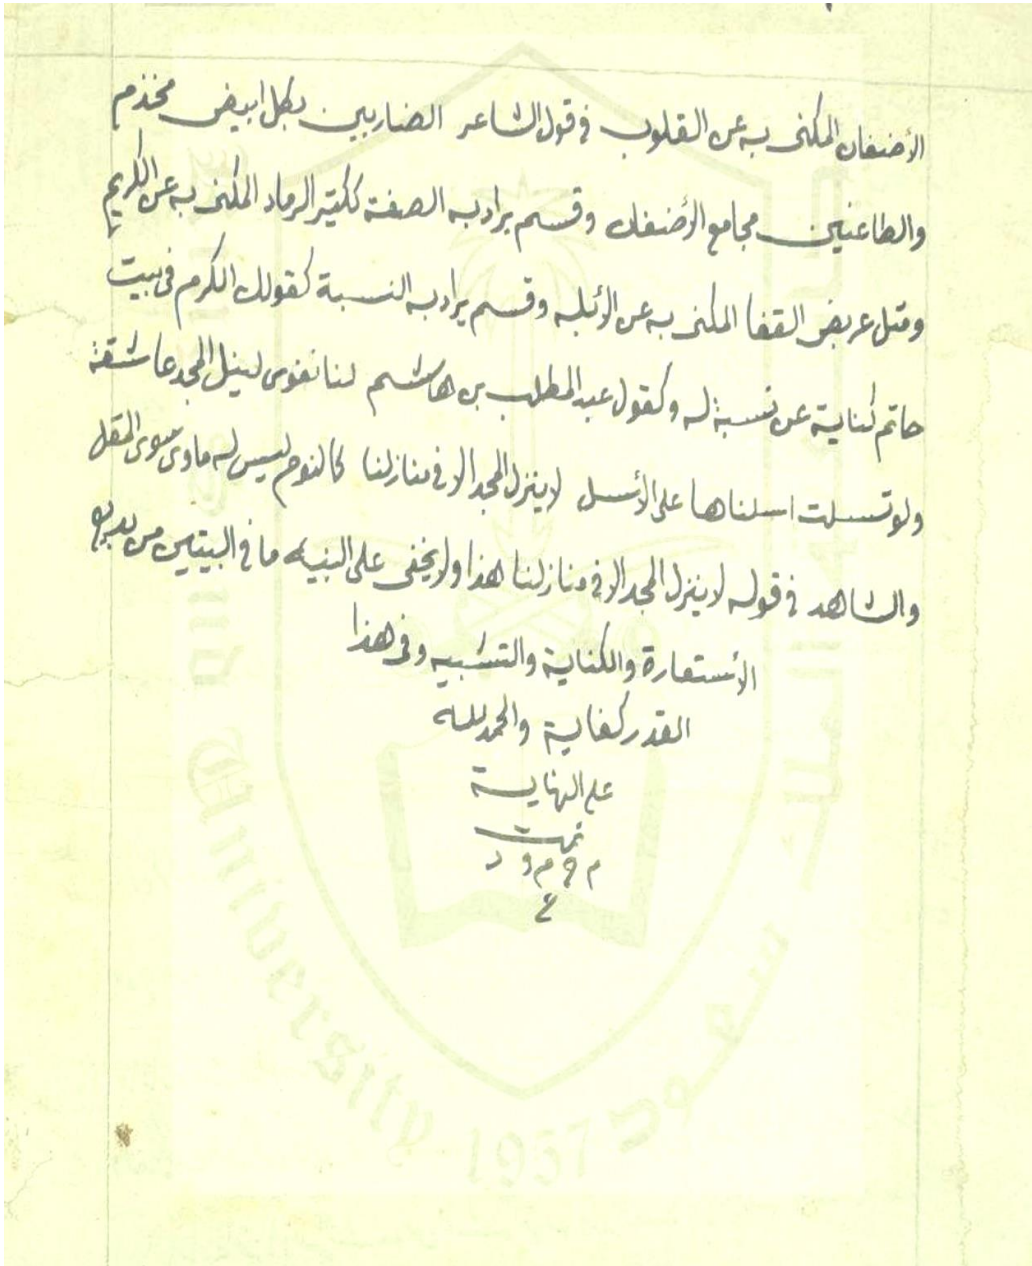 الأضغان المكنى به عن القلوب في قول الشاعر الضاربين بكل ابيض مخذم
والطاعنين مجامع الأضغان وقسم يراد به الصفة ككثير الرماد المكنى به عن الكريم
ومثل عريض القفا المكنى به عن الأبله وقسم يراد به النسبة كقولك الكرم في بيت
حاتم كناية عن نسبة له وكقول عبد المطلب بن هاشم لنا نفوس لنيل المجد عاشقة
ولو تسلت اسلناها على الأسل لا ينزل المجد الا في منازلنا كالنوم ليس له ماوى سوى المقل
والشاهد في قوله لا ينزل المجد الا في منازلنا هذا ولا يخفى على النبيه ما في البيتين من بديع
الأستعارة والكناية والتشبيه وفي هذا
القدر كفاية والحمد لله
على النهاية
تمت
King Saud University 1957
جامعة الملك سعود